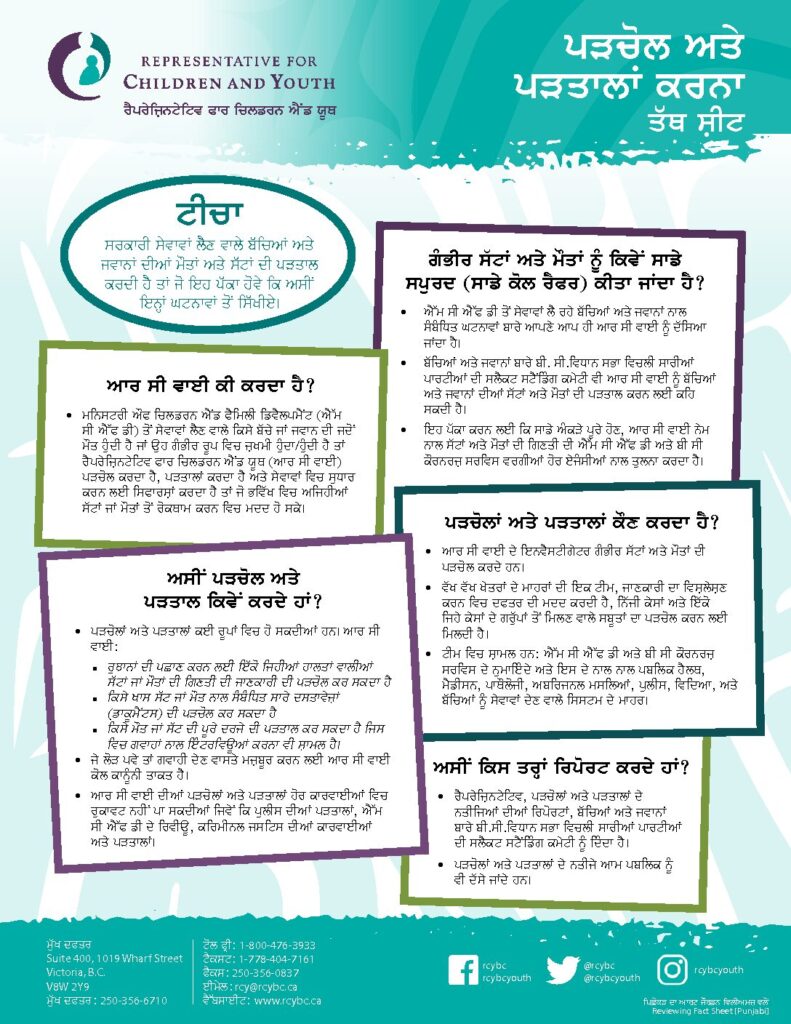 REPRESENTATIVE FOR
CHILDREN AND YOUTH
ਰੈਪਰੇਜ਼ਿਨਟੇਟਿਵ ਫਾਰ ਚਿਲਡਰਨ ਐਂਡ ਯੂਥ
ਪੜਚੋਲ ਅਤੇ
ਪੜਤਾਲਾਂ ਕਰਨਾ
ਤੱਥ ਸ਼ੀਟ
ਟੀਚਾ
ਸਰਕਾਰੀ ਸੇਵਾਵਾਂ ਲੈਣ ਵਾਲੇ ਬੱਚਿਆਂ ਅਤੇ
ਜਵਾਨਾਂ ਦੀਆਂ ਮੌਤਾਂ ਅਤੇ ਸੱਟਾਂ ਦੀ ਪੜਤਾਲ
ਕਰਦੀ ਹੈ ਤਾਂ ਜੋ ਇਹ ਪੱਕਾ ਹੋਵੇ ਕਿ ਅਸੀਂ
ਇਨ੍ਹਾਂ ਘਟਨਾਵਾਂ ਤੋਂ ਸਿੱਖੀਏ।
ਆਰ ਸੀ ਵਾਈ ਕੀ ਕਰਦਾ ਹੈ?
• ਮਨਿਸਟਰੀ ਔਫ ਚਿਲਡਰਨ ਐਂਡ ਫੈਮਿਲੀ ਡਿਵੈਲਪਮੈਂਟ (ਐੱਮ
ਸੀ ਐੱਫ ਡੀ) ਤੋਂ ਸੇਵਾਵਾਂ ਲੈਣ ਵਾਲੇ ਕਿਸੇ ਬੱਚੇ ਜਾਂ ਜਵਾਨ ਦੀ ਜਦੋਂ
ਮੌਤ ਹੁੰਦੀ ਹੈ ਜਾਂ ਉਹ ਗੰਭੀਰ ਰੂਪ ਵਿਚ ਜ਼ਖਮੀ ਹੁੰਦਾ/ਹੁੰਦੀ ਹੈ ਤਾਂ
ਰੈਪਰੇਜ਼ਿਨਟੇਟਿਵ ਫਾਰ ਚਿਲਡਰਨ ਐਂਡ ਯੂਥ (ਆਰ ਸੀ ਵਾਈ)
ਪੜਚੋਲ ਕਰਦਾ ਹੈ, ਪੜਤਾਲਾਂ ਕਰਦਾ ਹੈ ਅਤੇ ਸੇਵਾਵਾਂ ਵਿਚ ਸੁਧਾਰ
ਕਰਨ ਲਈ ਸਿਫਾਰਸ਼ਾਂ ਕਰਦਾ ਹੈ ਤਾਂ ਜੋ ਭਵਿੱਖ ਵਿਚ ਅਜਿਹੀਆਂ
ਸੱਟਾਂ ਜਾਂ ਮੌਤਾਂ ਤੋਂ ਰੋਕਥਾਮ ਕਰਨ ਵਿਚ ਮਦਦ ਹੋ ਸਕੇ।
ਅਸੀਂ ਪੜਚੋਲ ਅਤੇ
ਪੜਤਾਲ ਕਿਵੇਂ ਕਰਦੇ ਹਾਂ?
• ਪੜਚੋਲਾਂ ਅਤੇ ਪੜਤਾਲਾਂ ਕਈ ਰੂਪਾਂ ਵਿਚ ਹੋ ਸਕਦੀਆਂ ਹਨ। ਆਰ ਸੀ
ਵਾਈ:
▪ ਰੁਝਾਨਾਂ ਦੀ ਪਛਾਣ ਕਰਨ ਲਈ ਇੱਕੋ ਜਿਹੀਆਂ ਹਾਲਤਾਂ ਵਾਲੀਆਂ
ਸੱਟਾਂ ਜਾਂ ਮੌਤਾਂ ਦੀ ਗਿਣਤੀ ਦੀ ਜਾਣਕਾਰੀ ਦੀ ਪੜਚੋਲ ਕਰ ਸਕਦਾ ਹੈ
▪ ਕਿਸੇ ਖਾਸ ਸੱਟ ਜਾਂ ਮੌਤ ਨਾਲ ਸੰਬੰਧਿਤ ਸਾਰੇ ਦਸਤਾਵੇਜ਼ਾਂ
(ਡਾਕੂਮੈਂਟਸ) ਦੀ ਪੜਚੋਲ ਕਰ ਸਕਦਾ ਹੈ
▪ ਕਿਸੇ ਮੌਤ ਜਾਂ ਸੱਟ ਦੀ ਪੂਰੇ ਦਰਜੇ ਦੀ ਪੜਤਾਲ ਕਰ ਸਕਦਾ ਹੈ ਜਿਸ
ਵਿਚ ਗਵਾਹਾਂ ਨਾਲ ਇੰਟਰਵਿਊਆਂ ਕਰਨਾ ਵੀ ਸ਼ਾਮਲ ਹੈ।
• ਜੇ ਲੋੜ ਪਵੇ ਤਾਂ ਗਵਾਹੀ ਦੇਣ ਵਾਸਤੇ ਮਜਬੂਰ ਕਰਨ ਲਈ ਆਰ ਸੀ ਵਾਈ
ਕੋਲ ਕਾਨੂੰਨੀ ਤਾਕਤ ਹੈ।
• ਆਰ ਸੀ ਵਾਈ ਦੀਆਂ ਪੜਚੋਲਾਂ ਅਤੇ ਪੜਤਾਲਾਂ ਹੋਰ ਕਾਰਵਾਈਆਂ ਵਿਚ
ਰੁਕਾਵਟ ਨਹੀਂ ਪਾ ਸਕਦੀਆਂ ਜਿਵੇਂ ਕਿ ਪੁਲੀਸ ਦੀਆਂ ਪੜਤਾਲਾਂ, ਐੱਮ
ਸੀ ਐੱਫ ਡੀ ਦੇ ਰਿਵੀਊ, ਕਰਿਮੀਨਲ ਜਸਟਿਸ ਦੀਆਂ ਕਾਰਵਾਈਆਂ
ਅਤੇ ਪੜਤਾਲਾਂ।
ਗੰਭੀਰ ਸੱਟਾਂ ਅਤੇ ਮੌਤਾਂ ਨੂੰ ਕਿਵੇਂ ਸਾਡੇ
ਸਪੁਰਦ (ਸਾਡੇ ਕੋਲ ਰੈਫਰ) ਕੀਤਾ ਜਾਂਦਾ ਹੈ?
• ਐੱਮ ਸੀ ਐੱਫ ਡੀ ਤੋਂ ਸੇਵਾਵਾਂ ਲੈ ਰਹੇ ਬੱਚਿਆਂ ਅਤੇ ਜਵਾਨਾਂ ਨਾਲ
ਸੰਬੰਧਿਤ ਘਟਨਾਵਾਂ ਬਾਰੇ ਆਪਣੇ ਆਪ ਹੀ ਆਰ ਸੀ ਵਾਈ ਨੂੰ ਦੱਸਿਆ
ਜਾਂਦਾ ਹੈ।
• ਬੱਚਿਆਂ ਅਤੇ ਜਵਾਨਾਂ ਬਾਰੇ ਬੀ. ਸੀ.ਵਿਧਾਨ ਸਭਾ ਵਿਚਲੀ ਸਾਰੀਆਂ
ਪਾਰਟੀਆਂ ਦੀ ਸਲੈਕਟ ਸਟੈਂਡਿੰਗ ਕਮੇਟੀ ਵੀ ਆਰ ਸੀ ਵਾਈ ਨੂੰ ਬੱਚਿਆਂ
ਅਤੇ ਜਵਾਨਾਂ ਦੀਆਂ ਸੱਟਾਂ ਅਤੇ ਮੌਤਾਂ ਦੀ ਪੜਤਾਲ ਕਰਨ ਲਈ ਕਹਿ
ਸਕਦੀ ਹੈ।
• ਇਹ ਪੱਕਾ ਕਰਨ ਲਈ ਕਿ ਸਾਡੇ ਅੰਕੜੇ ਪੂਰੇ ਹੋਣ, ਆਰ ਸੀ ਵਾਈ ਨੇਮ
ਨਾਲ ਸੱਟਾਂ ਅਤੇ ਮੌਤਾਂ ਦੀ ਗਿਣਤੀ ਦੀ ਐੱਮ ਸੀ ਐੱਫ ਡੀ ਅਤੇ ਬੀ ਸੀ
ਕੌਰਨਰਜ਼ ਸਰਵਿਸ ਵਰਗੀਆਂ ਹੋਰ ਏਜੰਸੀਆਂ ਨਾਲ ਤੁਲਨਾ ਕਰਦਾ ਹੈ।
ਪੜਚੋਲਾਂ ਅਤੇ ਪੜਤਾਲਾਂ ਕੌਣ ਕਰਦਾ ਹੈ?
• ਆਰ ਸੀ ਵਾਈ ਦੇ ਇਨਵੈਸਟੀਗੇਟਰ ਗੰਭੀਰ ਸੱਟਾਂ ਅਤੇ ਮੌਤਾਂ ਦੀ
ਪੜਚੋਲ ਕਰਦੇ ਹਨ।
• ਵੱਖ ਵੱਖ ਖੇਤਰਾਂ ਦੇ ਮਾਹਰਾਂ ਦੀ ਇਕ ਟੀਮ, ਜਾਣਕਾਰੀ ਦਾ ਵਿਸ਼ਲੇਸ਼ਣ
ਕਰਨ ਵਿਚ ਦਫਤਰ ਦੀ ਮਦਦ ਕਰਦੀ ਹੈ, ਨਿੱਜੀ ਕੇਸਾਂ ਅਤੇ ਇੱਕੋ
ਜਿਹੇ ਕੇਸਾਂ ਦੇ ਗਰੁੱਪਾਂ ਤੋਂ ਮਿਲਣ ਵਾਲੇ ਸਬੂਤਾਂ ਦਾ ਪੜਚੋਲ ਕਰਨ ਲਈ
ਮਿਲਦੀ ਹੈ।
• ਟੀਮ ਵਿਚ ਸ਼ਾਮਲ ਹਨ: ਐੱਮ ਸੀ ਐੱਫ ਡੀ ਅਤੇ ਬੀ ਸੀ ਕੌਰਨਰਜ਼
ਸਰਵਿਸ ਦੇ ਨੁਮਾਇੰਦੇ ਅਤੇ ਇਸ ਦੇ ਨਾਲ ਨਾਲ ਪਬਲਿਕ ਹੈਲਥ,
ਮੈਡੀਸਨ, ਪਾਥੋਲੋਜੀ, ਅਬਰਿਜਨਲ ਮਸਲਿਆਂ, ਪੁਲੀਸ, ਵਿਦਿਆ, ਅਤੇ
ਬੱਚਿਆਂ ਨੂੰ ਸੇਵਾਵਾਂ ਦੇਣ ਵਾਲੇ ਸਿਸਟਮ ਦੇ ਮਾਹਰ।
ਅਸੀਂ ਕਿਸ ਤਰ੍ਹਾਂ ਰਿਪੋਰਟ ਕਰਦੇ ਹਾਂ?
• ਰੈਪਰੇਜ਼ਿਨਟੇਟਿਵ, ਪੜਚੋਲਾਂ ਅਤੇ ਪੜਤਾਲਾਂ ਦੇ
ਨਤੀਜਿਆਂ ਦੀਆਂ ਰਿਪੋਰਟਾਂ, ਬੱਚਿਆਂ ਅਤੇ ਜਵਾਨਾਂ
ਬਾਰੇ ਬੀ.ਸੀ.ਵਿਧਾਨ ਸਭਾ ਵਿਚਲੀ ਸਾਰੀਆਂ ਪਾਰਟੀਆਂ
ਦੀ ਸਲੈਕਟ ਸਟੈਂਡਿੰਗ ਕਮੇਟੀ ਨੂੰ ਦਿੰਦਾ ਹੈ।
• ਪੜਚੋਲਾਂ ਅਤੇ ਪੜਤਾਲਾਂ ਦੇ ਨਤੀਜੇ ਆਮ ਪਬਲਿਕ ਨੂੰ
ਵੀ ਦੱਸੇ ਜਾਂਦੇ ਹਨ।
ਮੁੱਖ ਦਫਤਰ
Suite 400, 1019 Wharf Street
Victoria, B.C.
V8W 2Y9
ਮੁੱਖ ਦਫਤਰ: 250-356-6710
ਟੋਲ ਫ੍ਰੀ: 1-800-476-3933
ਟੈਕਸਟ: 1-778-404-7161
ਫੈਕਸ: 250-356-0837
ਈਮੇਲ: rcy@rcybc.ca
ਵੈੱਬਸਾਈਟ: www.rcybc.ca
rcybc
rcybcyouth
@rcybc
@rcybcyouth
rcybcyouth
ਪਿਛੋਕੜ ਦਾ ਆਰਟ ਜੌਰਡਨ ਵਿਲੀਅਮਜ਼ ਵਲੋਂ
Reviewing Fact Sheet [Punjabi]